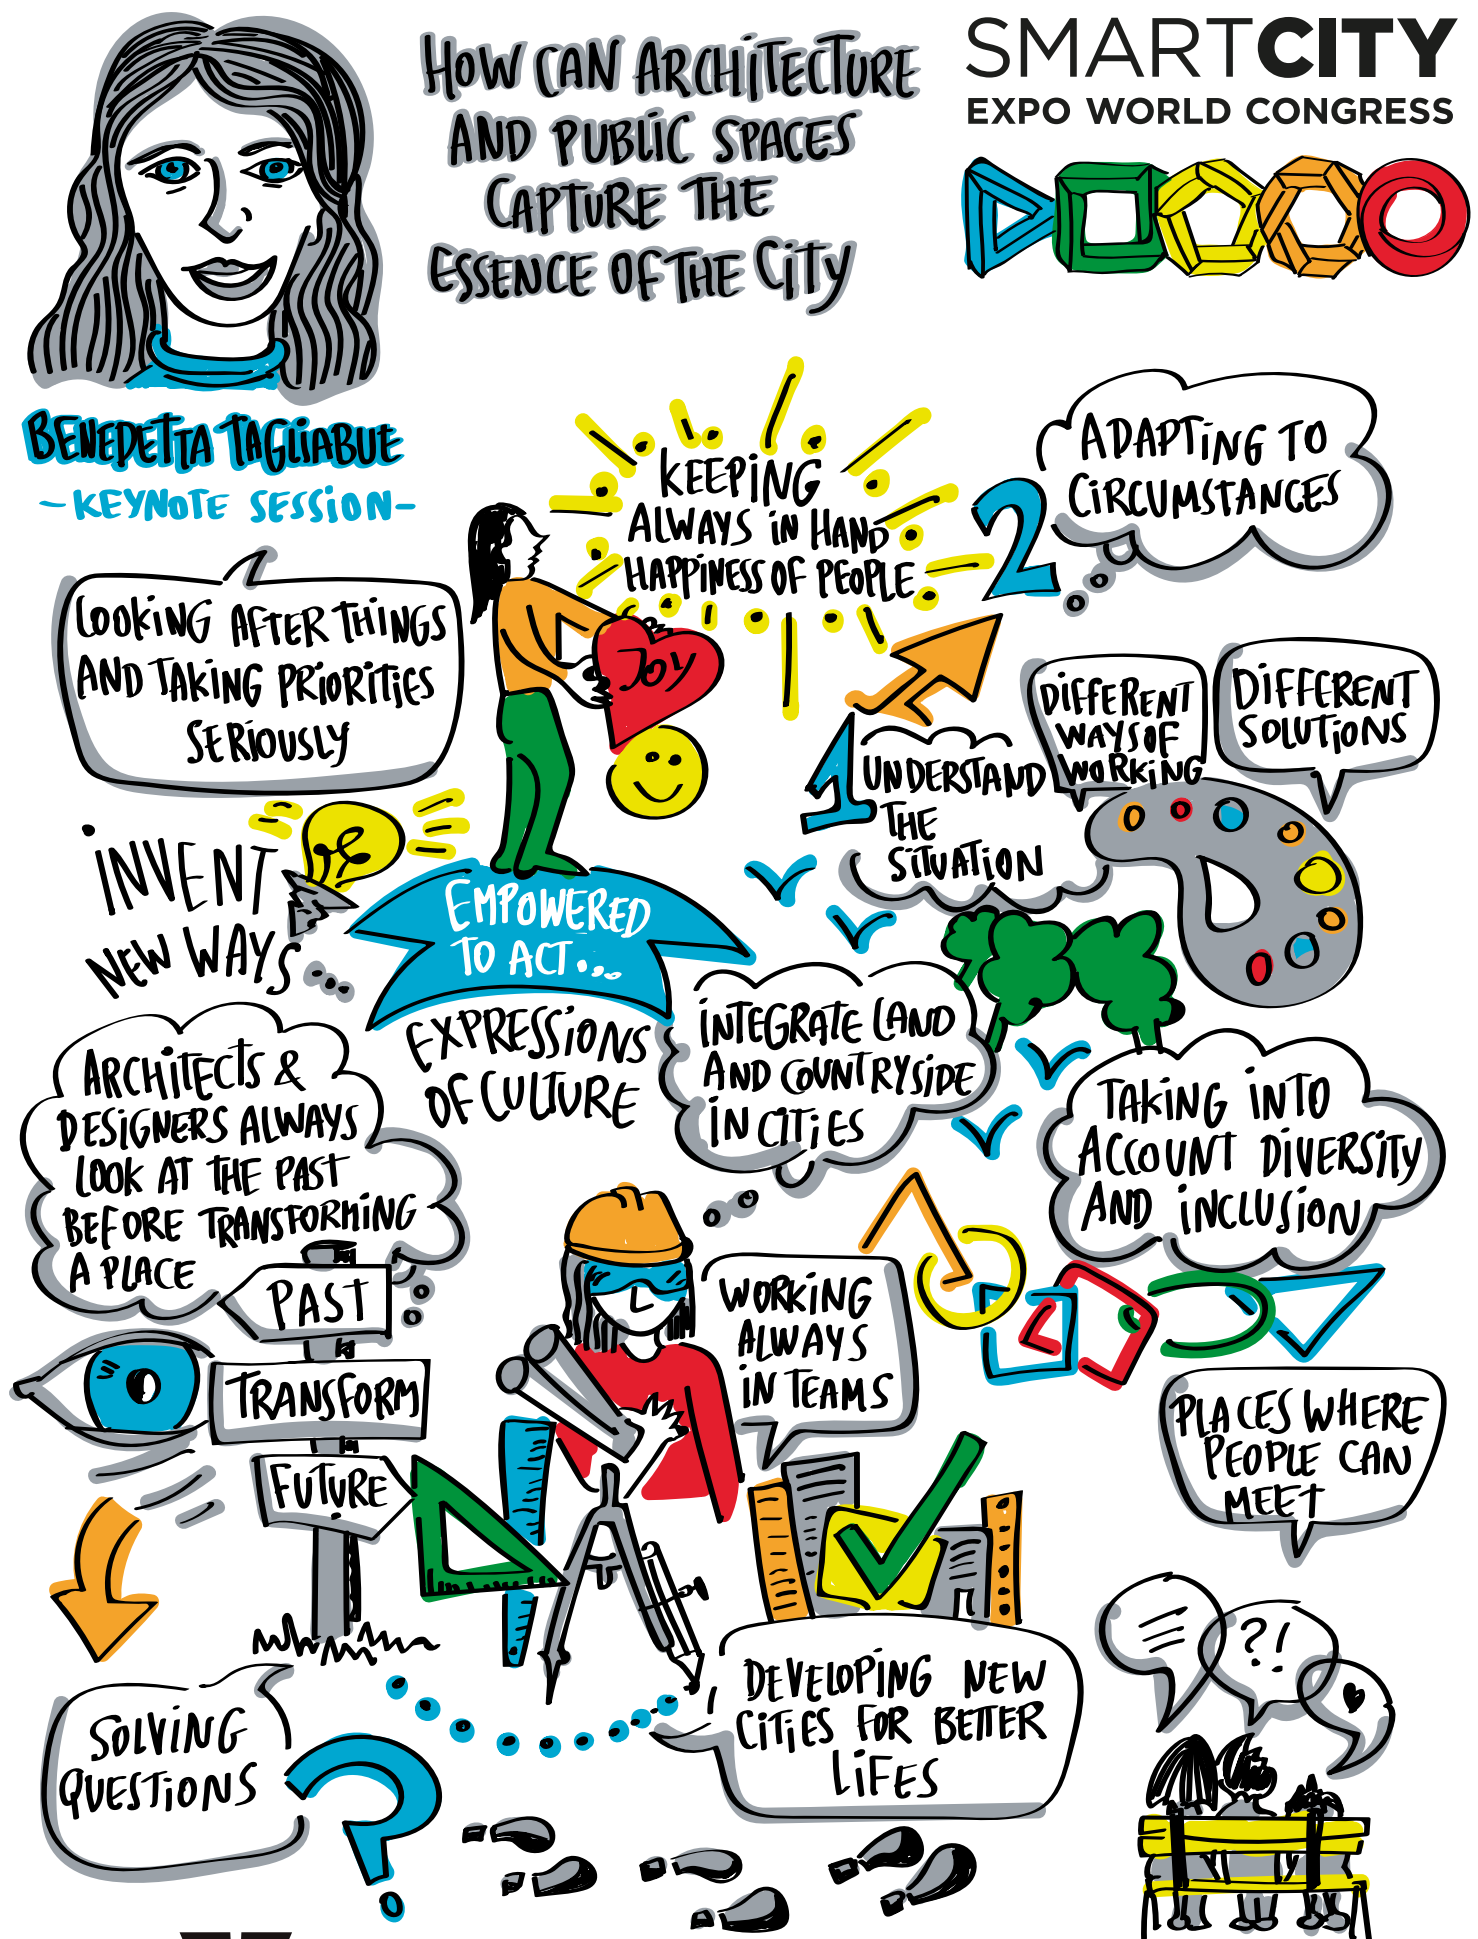 HOW CAN ARCHITECTURE
AND PUBLIC SPACES
CAPTURE THE
ESSENCE OF THE CITY
SMARTCITY
EXPO WORLD CONGRESS
BENEDETTA TAGLIABUE
-KEYNOTE SESSION-
LOOKING AFTER THINGS
AND TAKING PRIORITIES
SERIOUSLY
KEEPING
ALWAYS IN HAND
HAPPINESS OF PEOPLE
JOY
2
ADAPTING TO
CIRCUMSTANCES
1
UNDERSTAND
THE
SITUATION
DIFFERENT
WAYS OF
WORKING
DIFFERENT
SOLUTIONS
INVENT
NEW WAYS
EMPOWERED
TO ACT...
EXPRESSIONS
OF CULTURE
INTEGRATE LAND
AND COUNTRYSIDE
IN CITIES
TAKING INTO
ACCOUNT DIVERSITY
AND INCLUSION
ARCHITECTS &
DESIGNERS ALWAYS
LOOK AT THE PAST
BEFORE TRANSFORMING
A PLACE
PAST
TRANSFORM
FUTURE
WORKING
ALWAYS
IN TEAMS
PLACES WHERE
PEOPLE CAN
MEET
SOLVING
QUESTIONS
?
DEVELOPING NEW
CITIES FOR BETTER
LIFES
?!